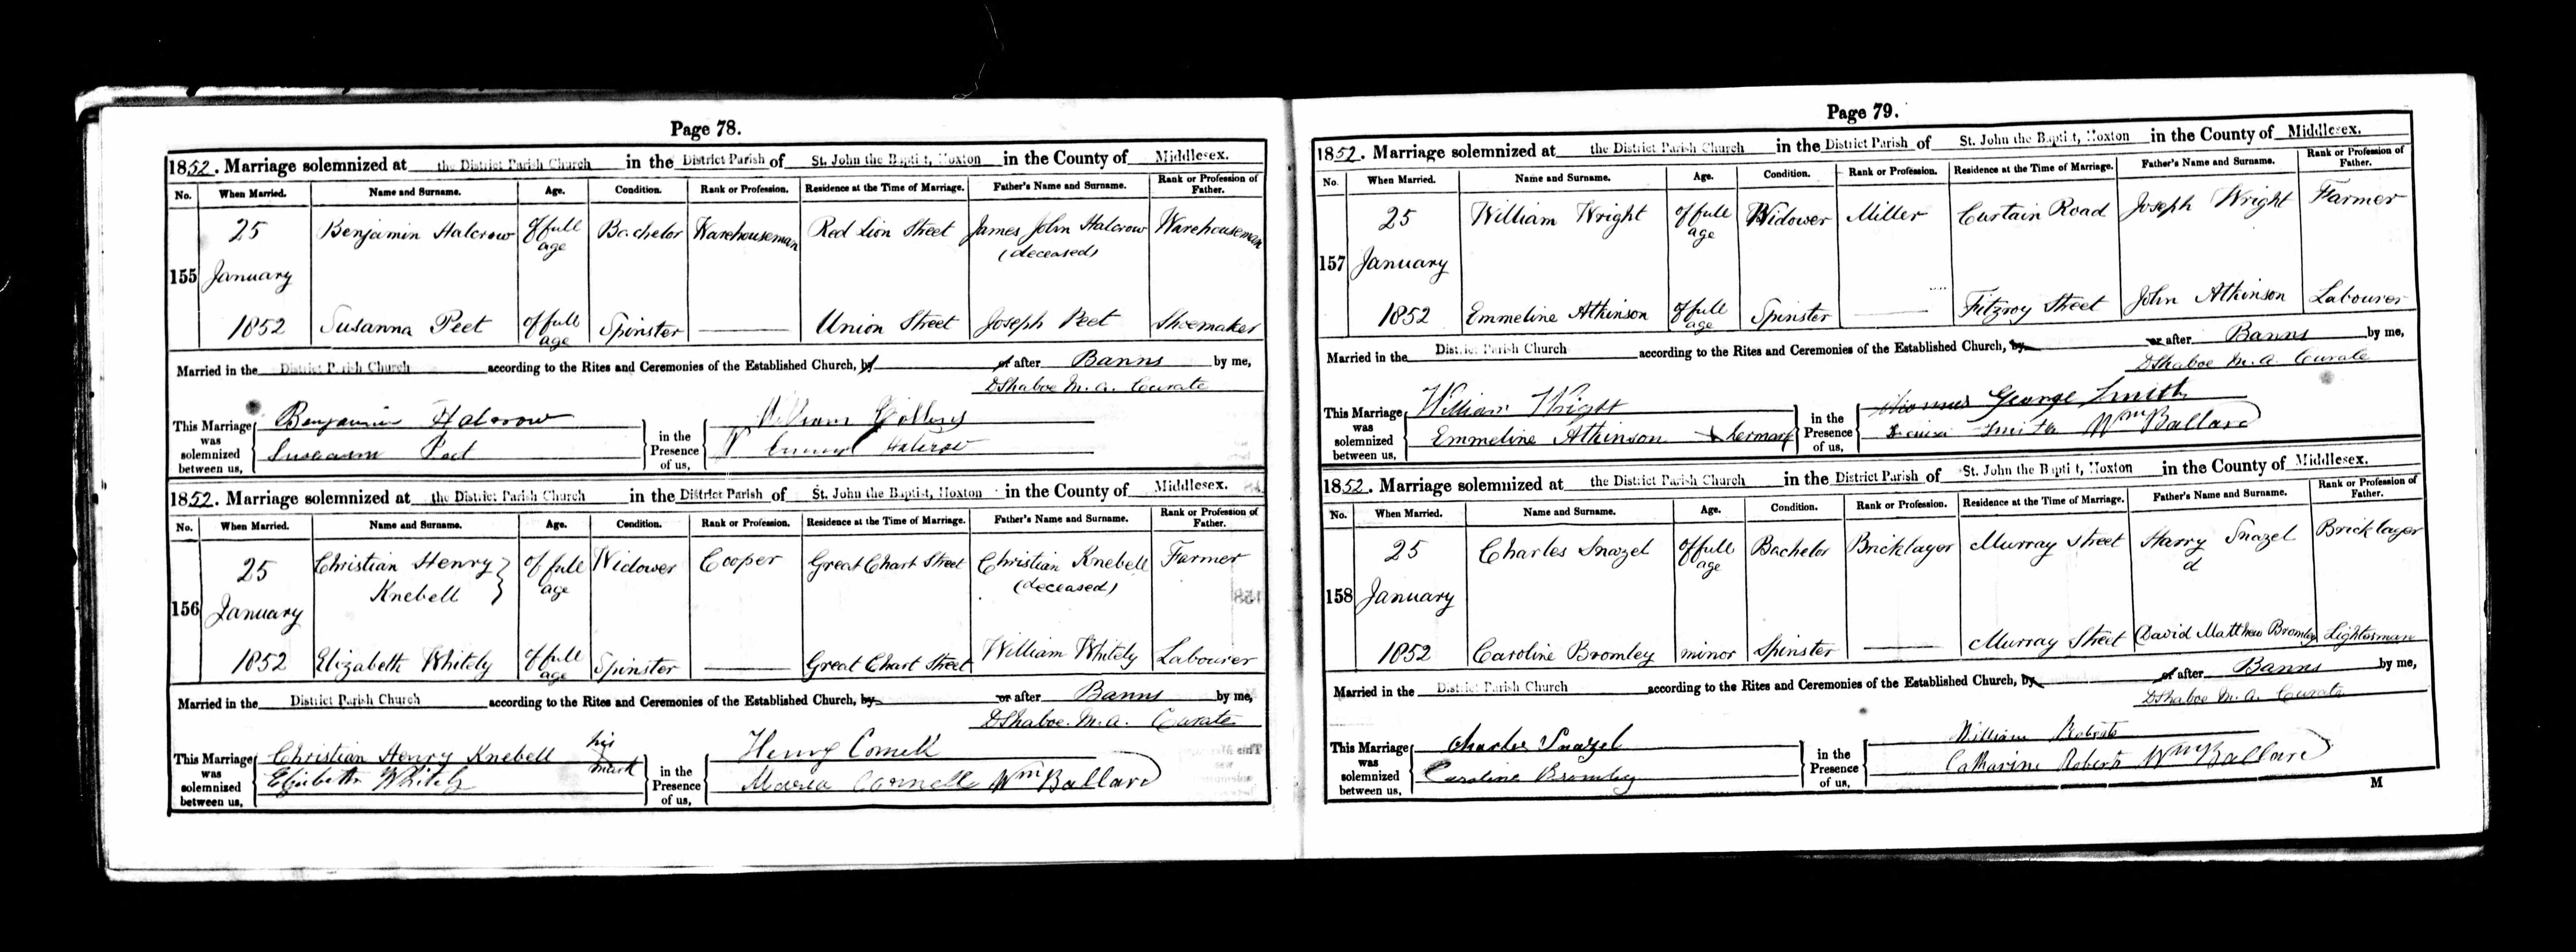 Page 78.
1852. Marriage solemnized at the District Parish Church in the District Parish of St. John the Baptist, Hoxton in the County of Middlesex.
No. When Married. Name and Surname. Age. Condition. Rank or Profession. Residence at the Time of Marriage. Father's Name and Surname. Rank or Profession of Father.
155 25 January 1852 Benjamin Halcrow of full age Bachelor Warehouseman Red Lion Street James John Halcrow (deceased) Warehouseman
Susanna Peet of full age Spinster Union Street Joseph Peet Shoemaker
Married in the District Parish Church according to the Rites and Ceremonies of the Established Church, by or after Banns by me,
D Shaboe M.A. Curate
This Marriage was solemnized between us, Benjamin Halcrow
in the Presence of us, William
Halcrow
1852. Marriage solemnized at the District Parish Church in the District Parish of St. John the Baptist, Hoxton in the County of Middlesex.
No. When Married. Name and Surname. Age. Condition. Rank or Profession. Residence at the Time of Marriage. Father's Name and Surname. Rank or Profession of Father.
156 25 January 1852 Christian Henry Knebell of full age Widower Cooper Great Chart Street Christian Knebell (deceased) Farmer
Elizabeth Whitely of full age Spinster Great Chart Street William Whitely Labourer
Married in the District Parish Church according to the Rites and Ceremonies of the Established Church, by or after Banns by me,
D Shaboe M.A. Curate
This Marriage was solemnized between us, Christian Henry Knebell his mark
Elizabeth Whitely
in the Presence of us, Henry Cornell
Maria Cornell Wm Ballard
Page 79.
1852. Marriage solemnized at the District Parish Church in the District Parish of St. John the Baptist, Hoxton in the County of Middlesex.
No. When Married. Name and Surname. Age. Condition. Rank or Profession. Residence at the Time of Marriage. Father's Name and Surname. Rank or Profession of Father.
157 25 January 1852 William Wright of full age Widower Miller Curtain Road Joseph Wright Farmer
Emmeline Atkinson of full age Spinster Fitzroy Street John Atkinson Labourer
Married in the District Parish Church according to the Rites and Ceremonies of the Established Church, by or after Banns by me,
D Shaboe M.A. Curate
This Marriage was solemnized between us, William Wright
Emmeline Atkinson X her mark
in the Presence of us, George Smith
Smith Wm Ballard
1852. Marriage solemnized at the District Parish Church in the District Parish of St. John the Baptist, Hoxton in the County of Middlesex.
No. When Married. Name and Surname. Age. Condition. Rank or Profession. Residence at the Time of Marriage. Father's Name and Surname. Rank or Profession of Father.
158 25 January 1852 Charles Snazel of full age Bachelor Bricklayer Murray Street Harry Snazel d Bricklayer
Caroline Bromley minor Spinster Murray Street David Matthew Bromley Lighterman
Married in the District Parish Church according to the Rites and Ceremonies of the Established Church, by or after Banns by me,
D Shaboe M.A. Curate
This Marriage was solemnized between us, Charles Snazel
Caroline Bromley
in the Presence of us, William Roberts
Catharine Roberts Wm Ballard
M